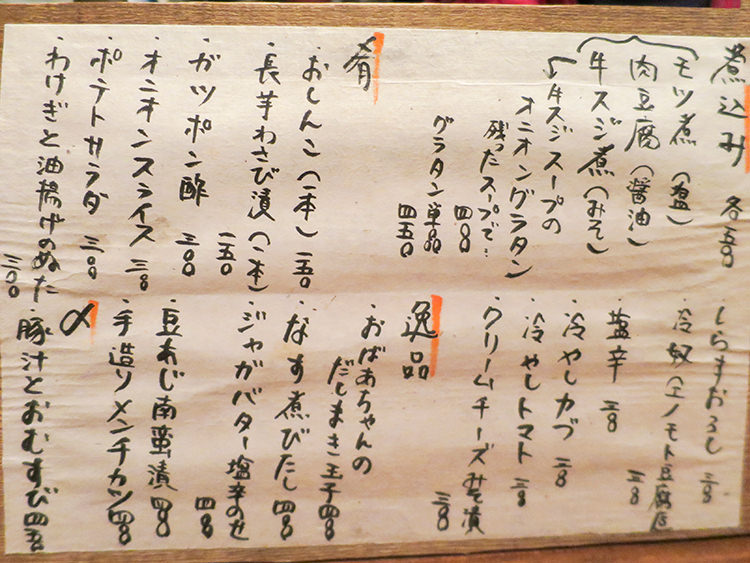 煮込み 各五〇〇
モツ煮(塩)
肉豆腐(醤油)
牛スジ煮(みそ)
↳牛スジスープの
オニオングラタン
残ったスープで… 四〇〇
グラタン単品 四五〇
肴
・おしんこ(一本) 一五〇
・長芋わさび漬(一本) 一五〇
・ガツポン酢 三〇〇
・オニオンスライス 三〇〇
・ポテトサラダ 三〇〇
・わけぎと油揚げのぬた 三〇〇
・しらすおろし 三〇〇
・冷奴(エノモト豆腐店) 三〇〇
・塩辛 三〇〇
・冷やしカブ 三〇〇
・冷やしトマト 三〇〇
・クリームチーズみそ漬 三〇〇
逸品
・おばあちゃんの
だしまき玉子 四〇〇
・なす煮びたし 四〇〇
・ジャガバター塩辛のせ 四〇〇
・豆あじ南蛮漬 四〇〇
・手造りメンチカツ 四〇〇
〆
・豚汁とおむすび 四五〇